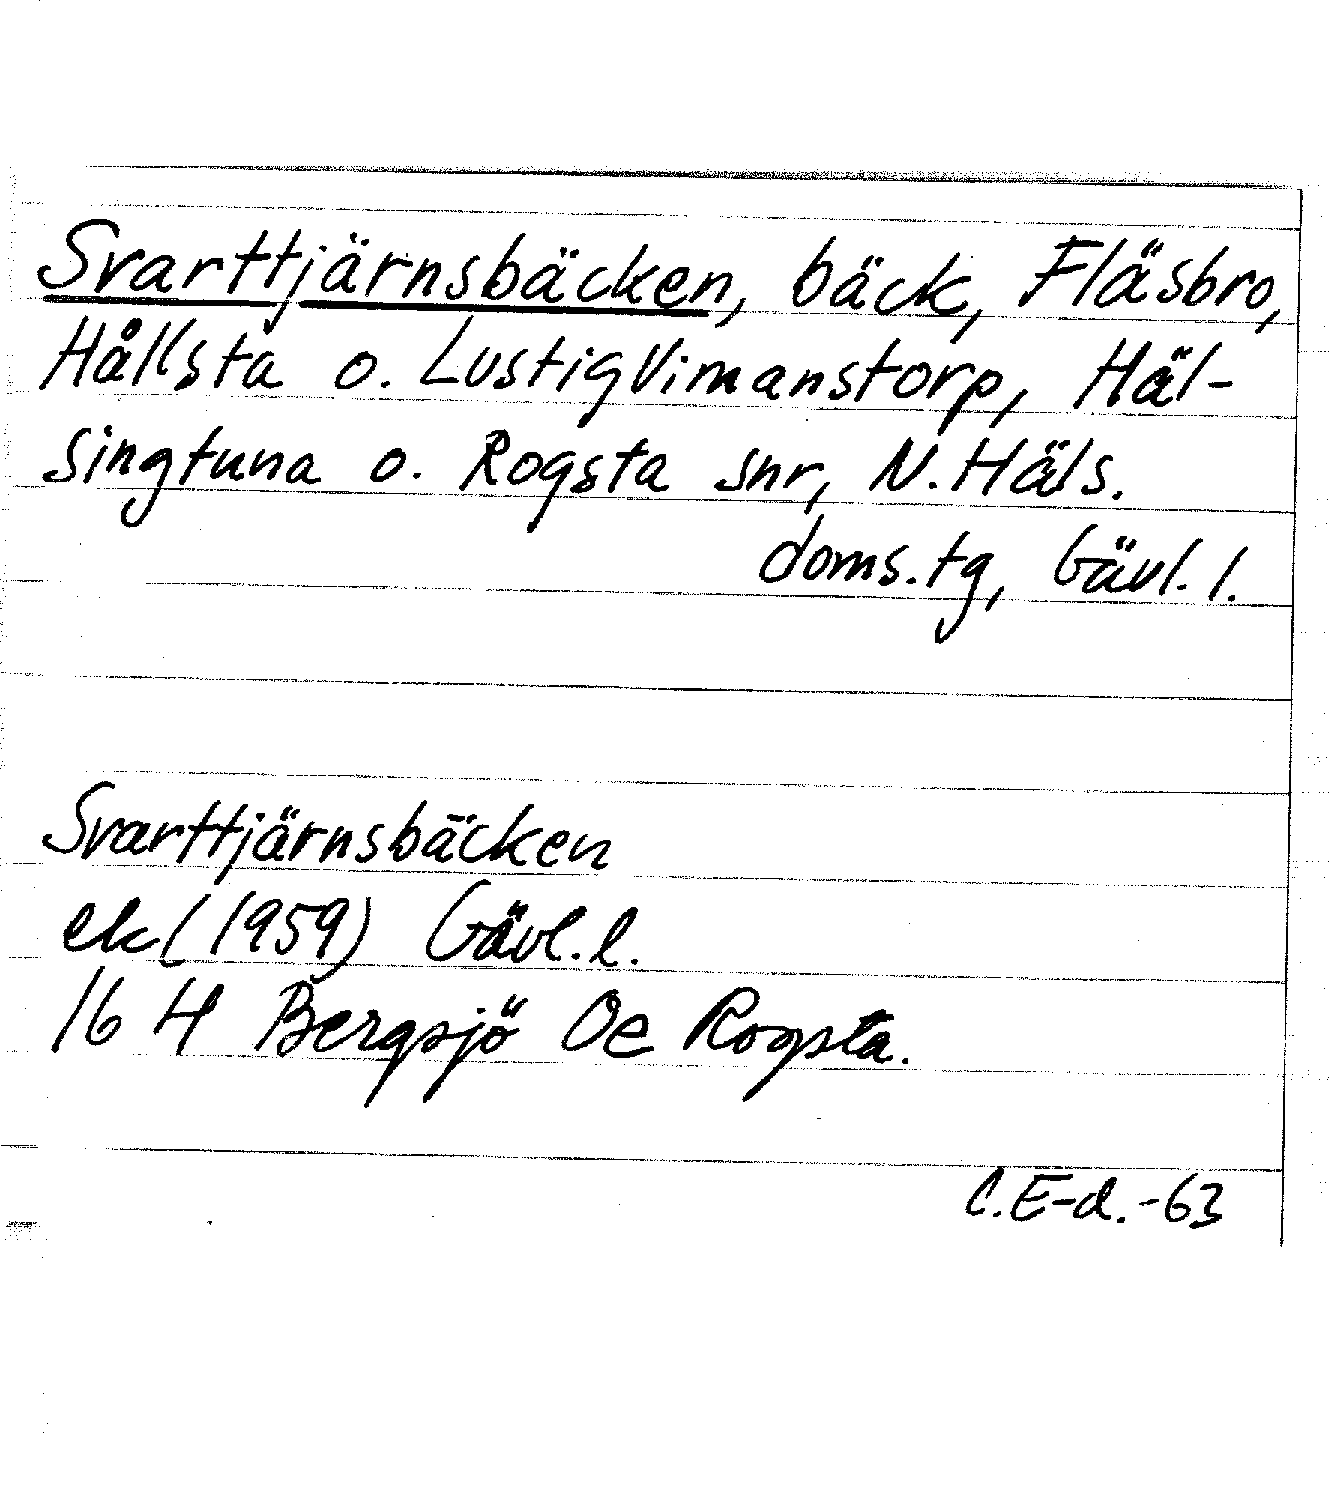 Svarttjärnsbäcken, bäck, Fläsbro,
Hållsta o. Lustigvimanstorp, Häl-
singtuna o. Rogsta snr, N. Häls.
doms.tg, Gävl. l.
Svarttjärnsbäcken
ek (1959) Gävl. l.
16 H Bergsjö Oe Rogsta.
C. E-d. -63